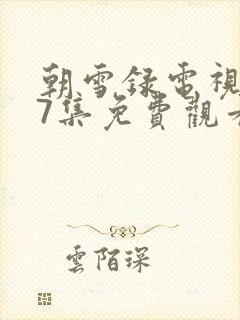 朝雪録電視
7集免費觀看
雲陌琛